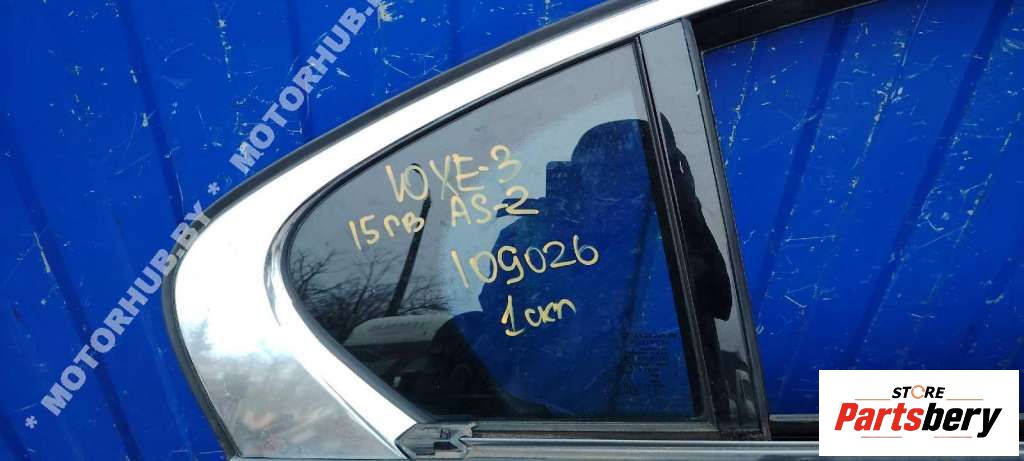 * MOTORHUB.BY * MOTORHUB.BY *
ЮХЕ-3
15ГВ AS-2
109026
1 скп
STORE
Partsbery